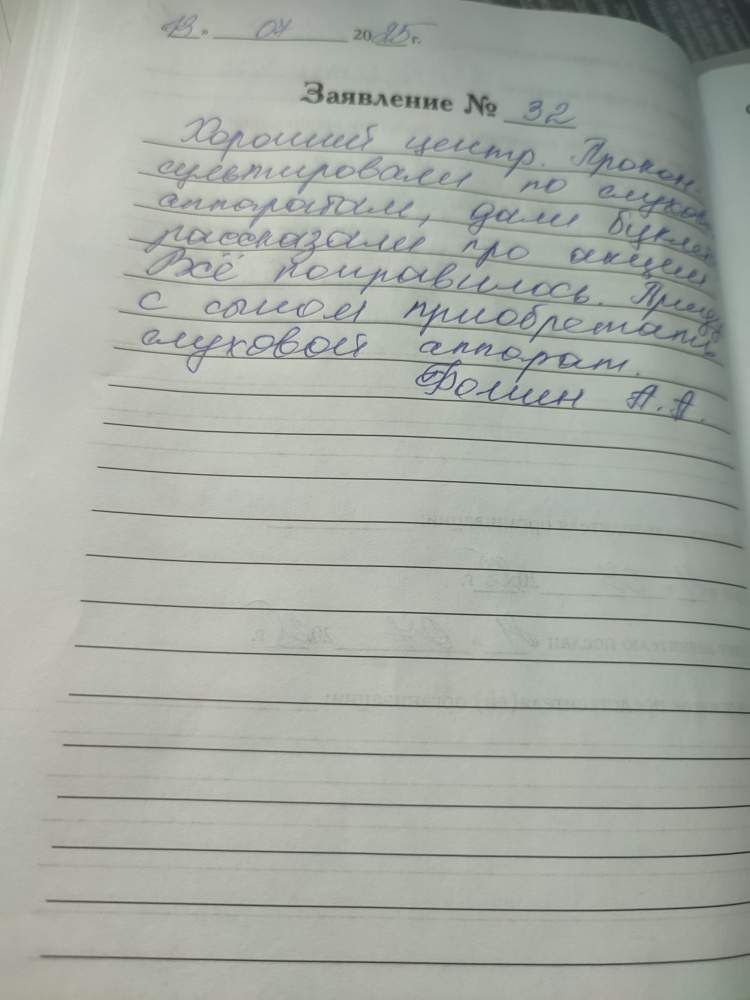 13 » 07 2025 г.
Заявление № 32
Хороший центр. Прокон-
сультировали по слухов
аппаратам, дали буклет
рассказали про акции
Всё понравилось. Приду
с сыном приобретать
слуховой аппарат.
Фомин А.А.